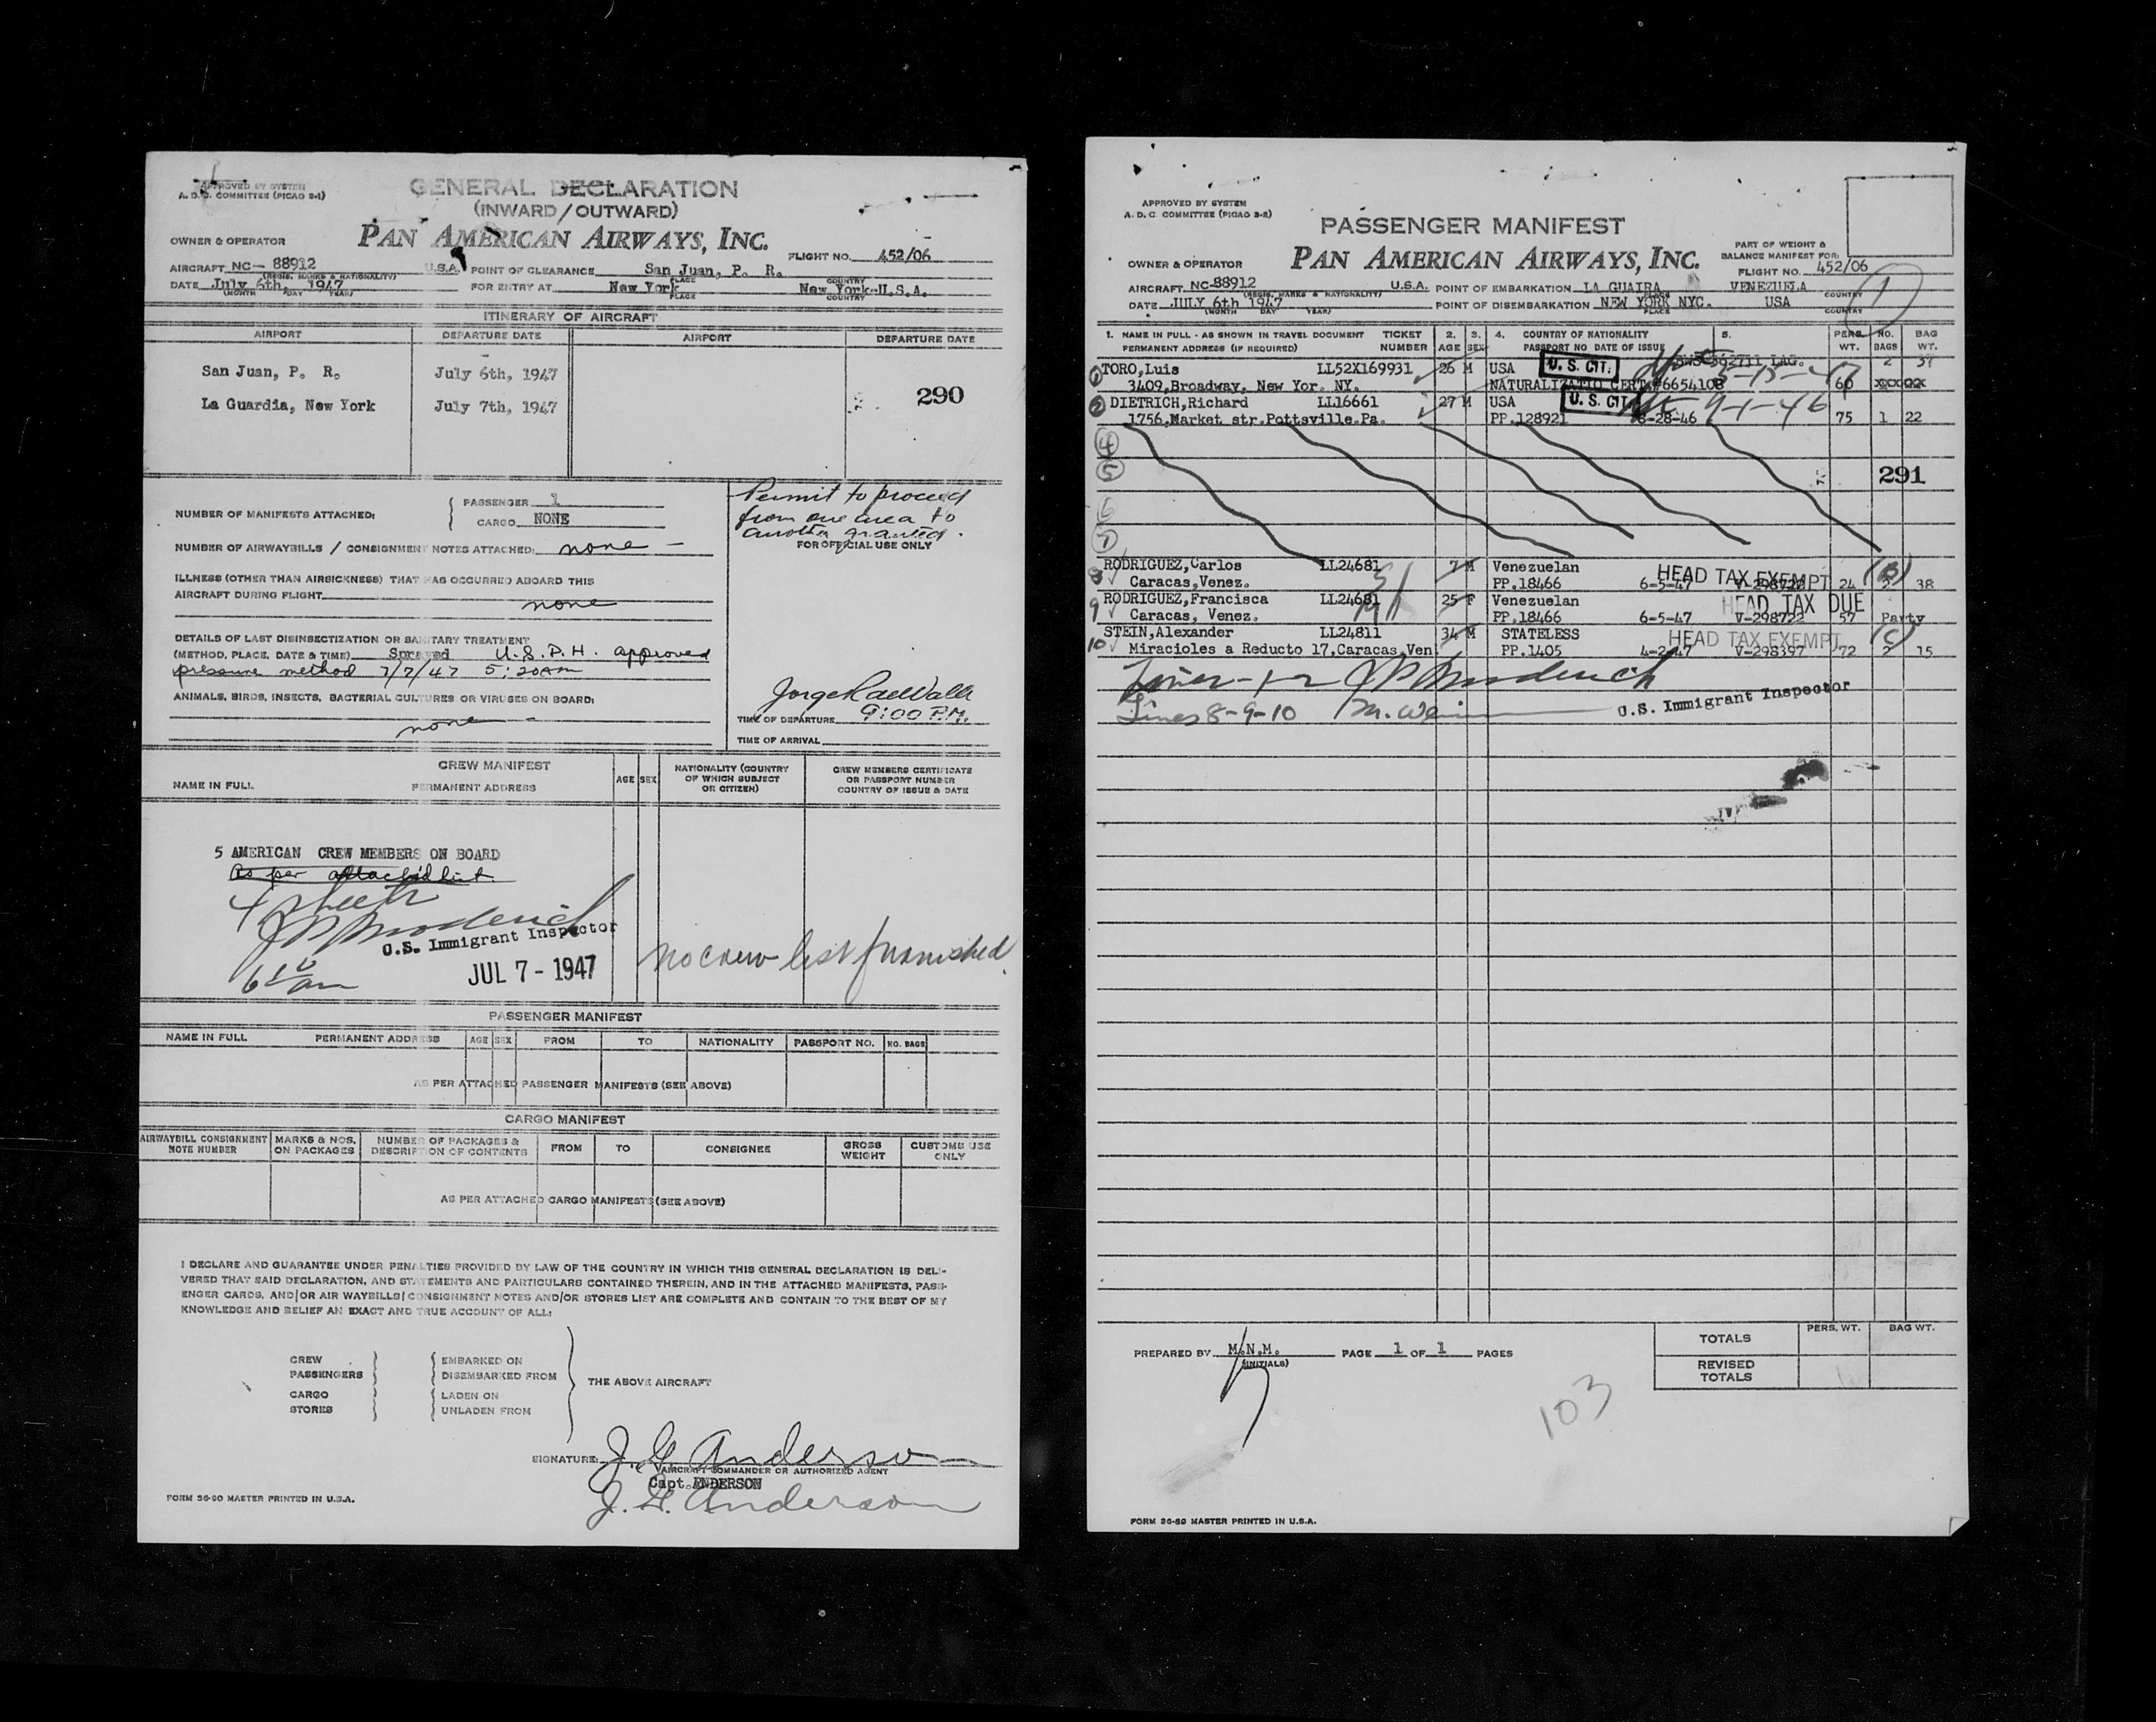 APPROVED BY SYSTEM
A. D. C. COMMITTEE (PICAO 3-1)
GENERAL DECLARATION
(INWARD/OUTWARD)
OWNER & OPERATOR
PAN AMERICAN AIRWAYS, INC.
FLIGHT NO. 452/06
AIRCRAFT NC- 88912 U.S.A. POINT OF CLEARANCE San Juan, P. R.
(REGIS. MARKS & NATIONALITY) PLACE COUNTRY
DATE July 6th, 1947 FOR ENTRY AT New York New York-U.S.A.
(MONTH DAY YEAR) PLACE COUNTRY
ITINERARY OF AIRCRAFT
AIRPORT DEPARTURE DATE AIRPORT DEPARTURE DATE
San Juan, P. R. July 6th, 1947
290
La Guardia, New York July 7th, 1947
NUMBER OF MANIFESTS ATTACHED: PASSENGER 1
CARGO NONE
Permit to proceed
from one area to
another granted.
FOR OFFICIAL USE ONLY
NUMBER OF AIRWAYBILLS / CONSIGNMENT NOTES ATTACHED: none -
ILLNESS (OTHER THAN AIRSICKNESS) THAT HAS OCCURRED ABOARD THIS
AIRCRAFT DURING FLIGHT none
DETAILS OF LAST DISINSECTIZATION OR SANITARY TREATMENT
(METHOD, PLACE, DATE & TIME) Sprayed U.S.P.H. approved
pressure method 7/7/47 5:20am
ANIMALS, BIRDS, INSECTS, BACTERIAL CULTURES OR VIRUSES ON BOARD:
none -
TIME OF DEPARTURE 9:00 P.M.
TIME OF ARRIVAL
CREW MANIFEST
NAME IN FULL PERMANENT ADDRESS AGE SEX NATIONALITY (COUNTRY OF WHICH SUBJECT OR CITIZEN) CREW MEMBERS CERTIFICATE OR PASSPORT NUMBER COUNTRY OF ISSUE & DATE
5 AMERICAN CREW MEMBERS ON BOARD
As per attached list.
U.S. Immigrant Inspector
No crew list furnished
JUL 7 - 1947
PASSENGER MANIFEST
NAME IN FULL PERMANENT ADDRESS AGE SEX FROM TO NATIONALITY PASSPORT NO. NO. BAGS
AS PER ATTACHED PASSENGER MANIFESTS (SEE ABOVE)
CARGO MANIFEST
AIRWAYBILL CONSIGNMENT NOTE NUMBER MARKS & NOS. ON PACKAGES NUMBER OF PACKAGES & DESCRIPTION OF CONTENTS FROM TO CONSIGNEE GROSS WEIGHT CUSTOMS USE ONLY
AS PER ATTACHED CARGO MANIFESTS (SEE ABOVE)
I DECLARE AND GUARANTEE UNDER PENALTIES PROVIDED BY LAW OF THE COUNTRY IN WHICH THIS GENERAL DECLARATION IS DELI-
VERED THAT SAID DECLARATION, AND STATEMENTS AND PARTICULARS CONTAINED THEREIN, AND IN THE ATTACHED MANIFESTS, PASS-
ENGER CARDS, AND/OR AIR WAYBILLS/CONSIGNMENT NOTES AND/OR STORES LIST ARE COMPLETE AND CONTAIN TO THE BEST OF MY
KNOWLEDGE AND BELIEF AN EXACT AND TRUE ACCOUNT OF ALL:
CREW EMBARKED ON
PASSENGERS DISEMBARKED FROM
THE ABOVE AIRCRAFT
CARGO LADEN ON
STORES UNLADEN FROM
SIGNATURE: J. G. Anderson
AIRCRAFT COMMANDER OR AUTHORIZED AGENT
Capt. ANDERSON
J. G. Anderson
FORM 36-90 MASTER PRINTED IN U.S.A.
APPROVED BY SYSTEM
A. D. C. COMMITTEE (PICAO 3-2)
PASSENGER MANIFEST
OWNER & OPERATOR
PAN AMERICAN AIRWAYS, INC.
PART OF WEIGHT &
BALANCE MANIFEST FOR:
FLIGHT NO. 452/06
AIRCRAFT NC-88912 U.S.A. POINT OF EMBARKATION LA GUAIRA VENEZUELA
(REGIS. MARKS & NATIONALITY) PLACE COUNTRY
DATE JULY 6th 1947 POINT OF DISEMBARKATION NEW YORK NYC. USA
(MONTH DAY YEAR) PLACE COUNTRY
1
1. NAME IN FULL - AS SHOWN IN TRAVEL DOCUMENT TICKET 2. 3. 4. COUNTRY OF NATIONALITY 5. PERS. NO. BAG
PERMANENT ADDRESS (IF REQUIRED) NUMBER AGE SEX PASSPORT NO DATE OF ISSUE WT. BAGS WT.
1 TORO,Luis LL52X169931 26 M USA U. S. CIT. 2 37
3409,Broadway. New Yor. NY. NATURALIZATIO CERT.#6654108 60 xxxxxx
2 DIETRICH,Richard LL16661 27 M USA U. S. CIT. 9-1-46
1756,Market str.Pottsville.Pa. PP.128921 8-28-46 75 1 22
4
5
291
6
7
8 RODRIGUEZ,Carlos LL24681 7 M Venezuelan HEAD TAX EXEMPT (B)
Caracas,Venez. PP.18466 6-5-47 V-298722 24 2 38
9 RODRIGUEZ,Francisca LL24681 25 F Venezuelan HEAD TAX DUE
Caracas, Venez. PP.18466 6-5-47 V-298722 57 Party
10 STEIN,Alexander LL24811 34 M STATELESS HEAD TAX EXEMPT (C)
Miracioles a Reducto 17,Caracas,Ven PP.1405 4-2-47 V-298397 72 2 15
Lines 8-9-10
U.S. Immigrant Inspector
PREPARED BY M.N.M. PAGE 1 OF 1 PAGES
(INITIALS)
PERS. WT. BAG WT.
TOTALS
REVISED TOTALS
103
FORM 36-89 MASTER PRINTED IN U.S.A.